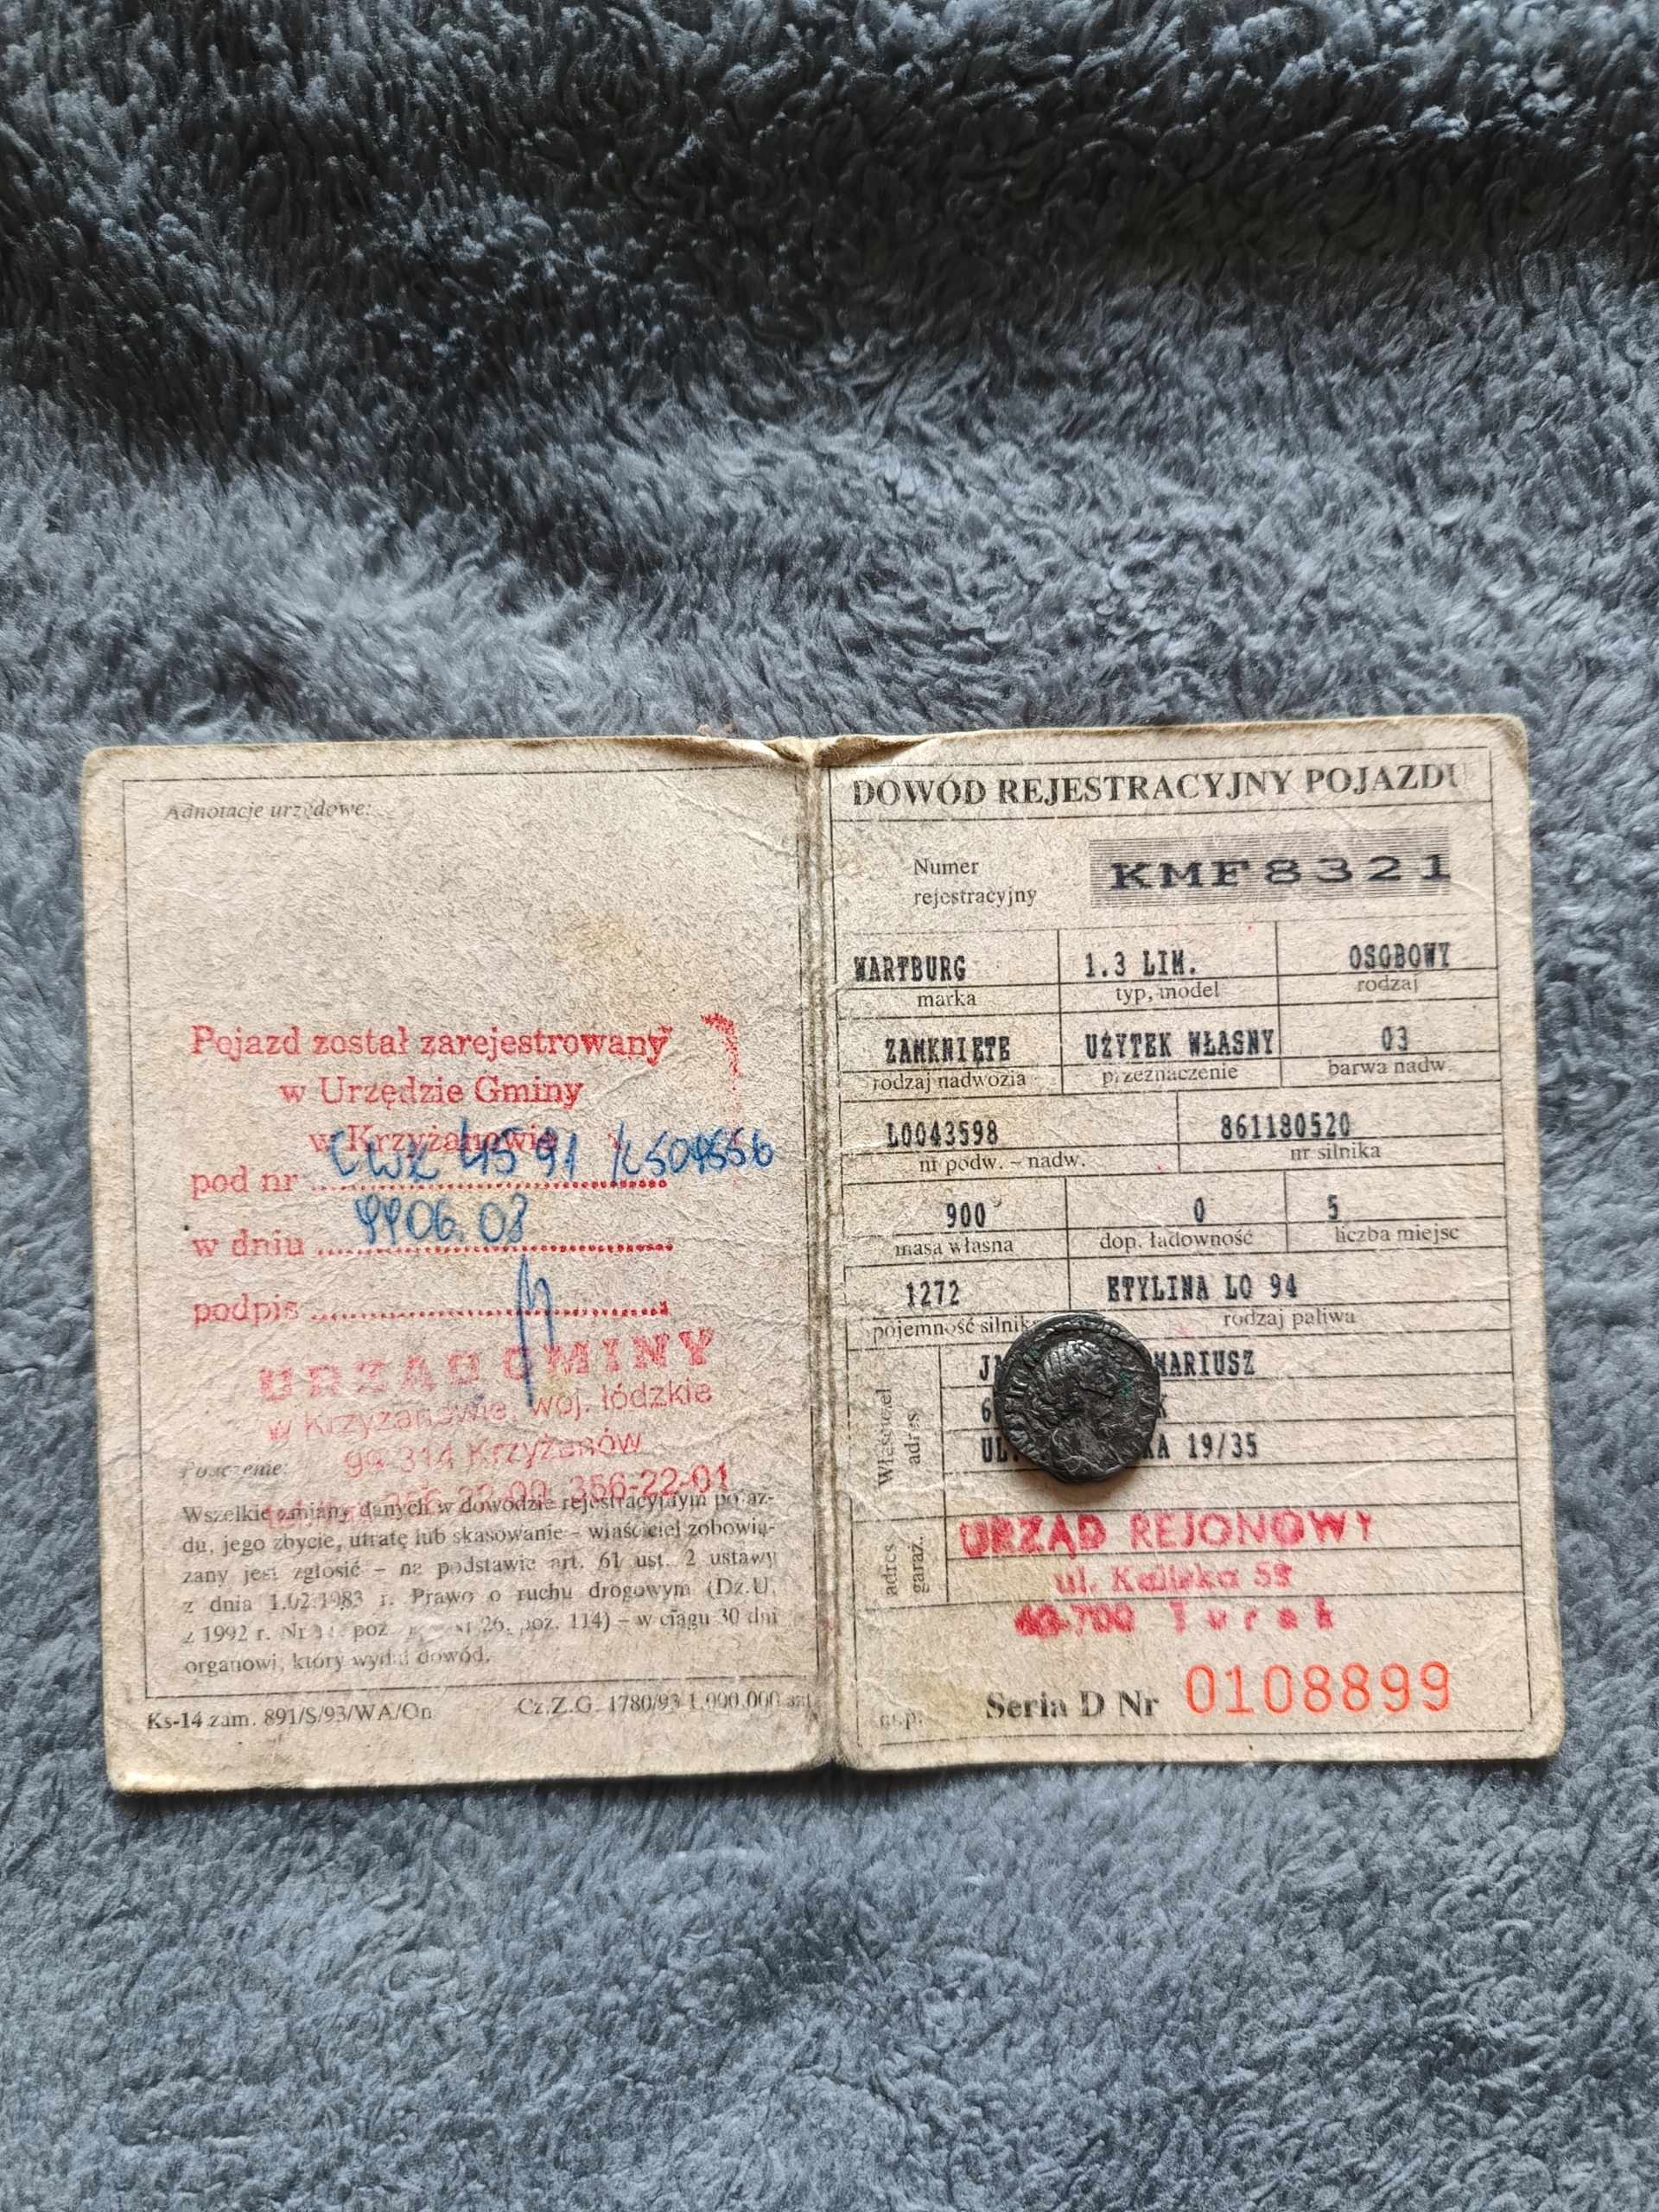 Adnotacje urzędowe:
Pojazd został zarejestrowany
w Urzędzie Gminy
w Krzyżanowie
pod nr
w dniu 99.06.08
podpis
URZĄD GMINY
w Krzyżanowie, woj. łódzkie
99-314 Krzyżanów
356-22-01
Pouczenie:
Wszelkie zmiany danych w dowodzie rejestracyjnym pojaz-
du, jego zbycie, utratę lub skasowanie – właściciel zobowią-
zany jest zgłosić – na podstawie art. 61 ust. 2 ustawy
z dnia 1.02.1983 r. Prawo o ruchu drogowym (Dz.U.
z 1992 r. Nr poz. 26, poz. 114) – w ciągu 30 dni
organowi, który wydał dowód.
Ks-14 zam. 891/S/93/WA/On
Cz.Z.G. 1780/93 1.000.000 szt
DOWÓD REJESTRACYJNY POJAZDU
Numer
rejestracyjny
KMF8321
WARTBURG 1.3 LIM. OSOBOWY
marka typ, model rodzaj
ZAMKNIĘTE UŻYTEK WŁASNY 03
rodzaj nadwozia przeznaczenie barwa nadw.
L0043598 861180520
nr podw. – nadw. nr silnika
900 0 5
masa własna dop. ładowność liczba miejsc
1272 ETYLINA LO 94
pojemność silnika rodzaj paliwa
Właściciel
adres
MARIUSZ
19/35
adres
garaż.
URZĄD REJONOWY
ul. Kaliska 59
Turek
m.p.
Seria D Nr 0108899